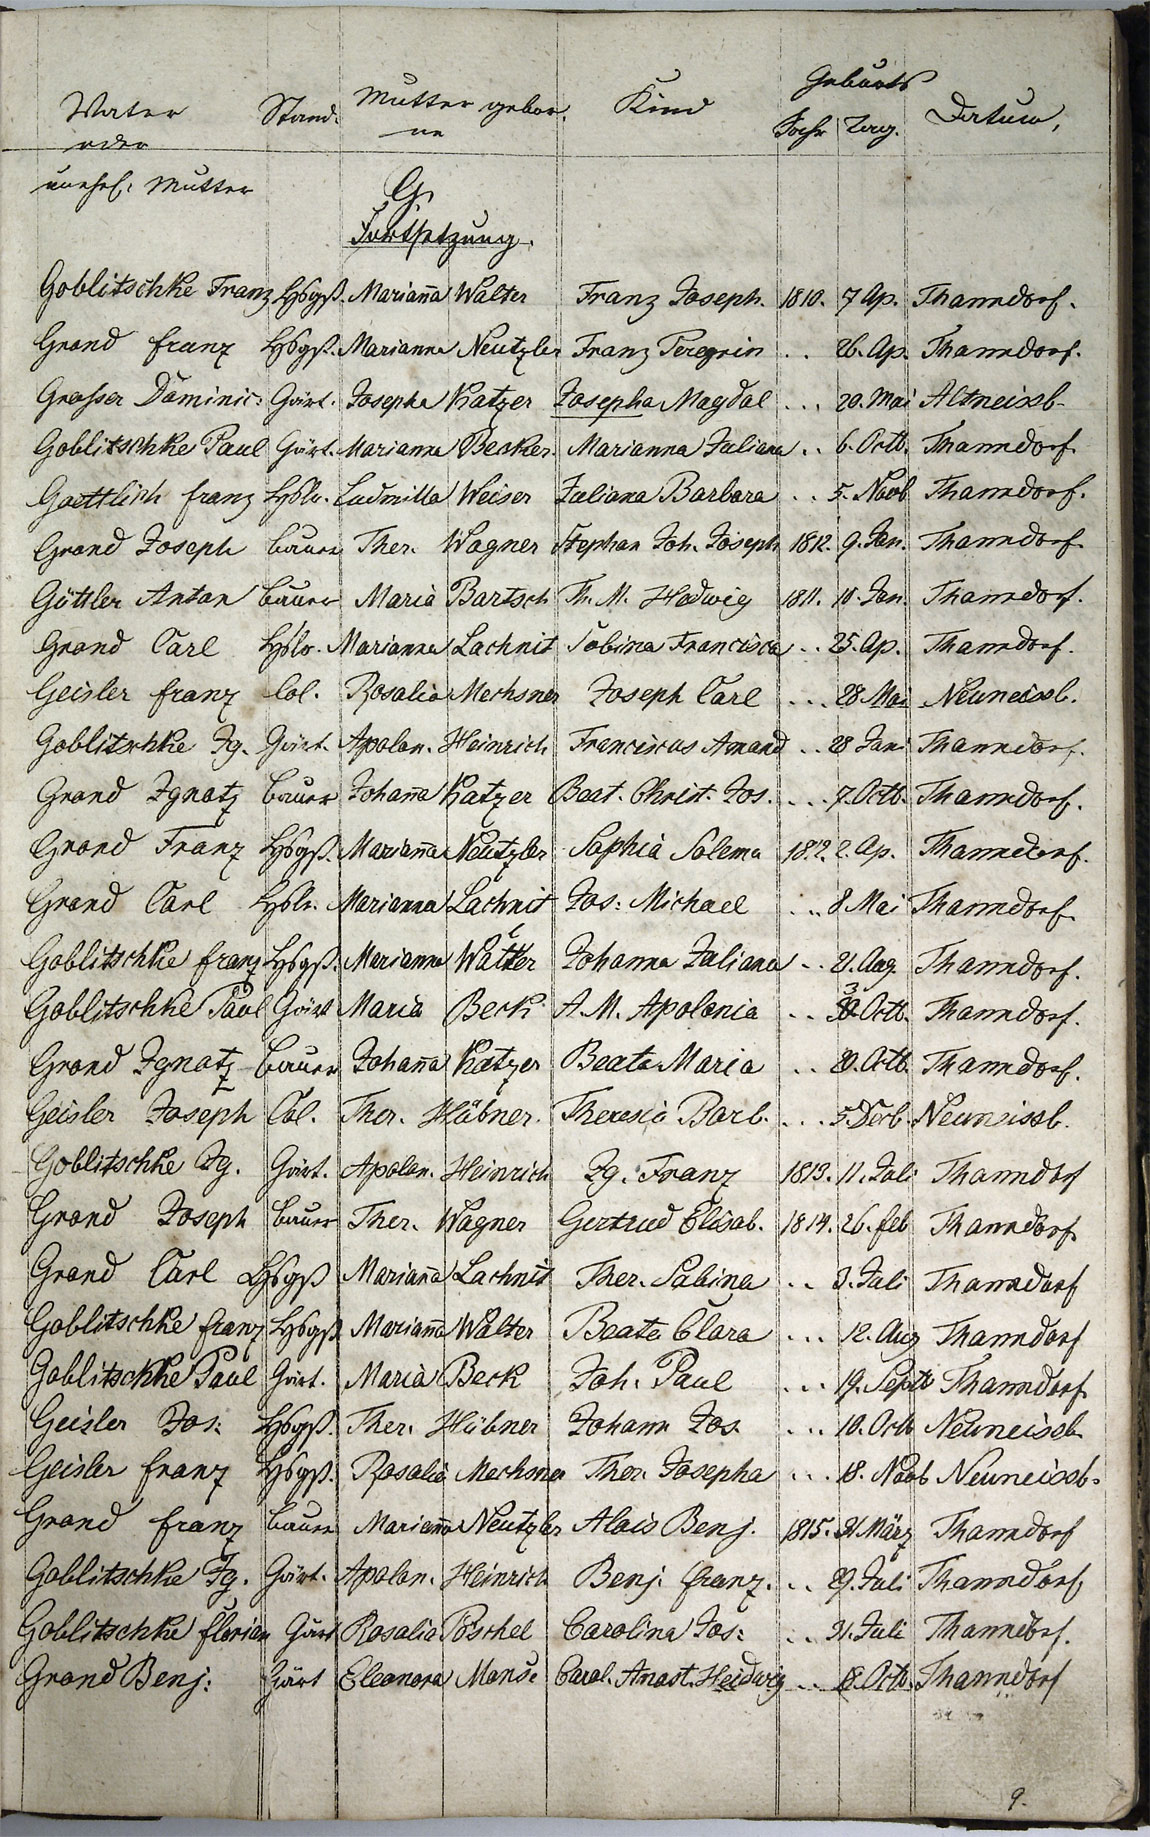 Geburts
Vater Stand. Mutter gebor. Kind Jahr Tag. Datum,
oder ne
unehel: Mutter
G
Fortsetzung.
Goblitschke Franz Hsgß. Mariana Walter Franz Joseph 1810. 7 Ap. Thanndorf.
Grond franz Hsgß. Marianna Neutzler Franz Peregrin .. 26. Ap. Thanndorf.
Grosser Dominic: Gärt. Josepha Katzer Josepha Magdal ... 20. Mai Altneissb.
Goblitschke Paul Gärt. Marianna Becker Marianna Juliana .. 6. Octb. Thanndorf.
Goettlich franz Hslr. Ludmilla Weiser Juliana Barbara .. 5. Novb Thanndorf.
Grond Joseph bauer Ther. Wagner Stephan Joh. Joseph 1812. 9. Jan. Thanndorf.
Göttler Anton bauer Maria Bartsch Th. M. Hedwig 1811. 10. Jan. Thanndorf.
Grond Carl Hslr. Marianna Lachnit Sabina Francisca .. 25. Ap. Thanndorf.
Geisler franz Col. Rosalia Mechsner Joseph Carl ... 28 Mai Neuneissb.
Goblitschke Ig. Gärt. Apolon. Heinrich Franciscus Amand .. 28 Juni Thanndorf.
Grond Ignatz bauer Johana Katzer Beat. Christ. Jos. ... 7. Octb. Thanndorf.
Grond Franz Hsgß. Mariana Neutzler Sophia Solema 1812. 2. Ap. Thanndorf.
Grond Carl Hslr. Marianna Lachnit Jos: Michael ... 8 Mai Thanndorf.
Goblitschke franz Hsgß. Marianna Walter Johanna Juliana .. 21. Aug. Thanndorf.
Goblitschke Paul Gärt Maria Beck A. M. Apolonia .. 30 Octb. Thanndorf.
Grond Ignatz bauer Johana Katzer Beata Maria .. 20. Octb. Thanndorf.
Geisler Joseph Col. Ther. Hübner. Theresia Barb. ... 5. Decb. Neuneissb.
Goblitschke Ig. Gärt. Apolon. Heinrich Ig. Franz 1813. 11. Juli Thanndorf
Grond Joseph bauer Ther. Wagner Gertrud Elisab. 1814. 26. feb Thanndorf.
Grond Carl Hsgß Mariana Lachnit Ther. Sabina .. 3. Juli Thanndorf
Goblitschke franz Hsgß Mariana Walter Beate Clara ... 12. Aug Thanndorf
Goblitschke Paul Gärt. Maria Beck Joh. Paul ... 19. Septb Thanndorf.
Geisler Jos: Hsgß. Ther. Hübner Johann Jos. ... 10. Octb Neuneissb.
Geisler franz Hsgß. Rosalia Mechsner Ther. Josepha ... 18. Novb Neuneissb.
Grond franz bauer Mariana Neutzler Alois Benj. 1815. 31 März Thanndorf
Goblitschke Ig. Gärt. Apolon. Heinrich Benj. franz. .. 29. Juli Thanndorf
Goblitschke florian Gärt Rosalia Pöschel Carolina Jos: ... 31. Juli Thanndorf.
Grond Benj: Gärt Eleonora Manse Carol. Anast. Heidwig ... 18. Octb. Thanndorf
9.